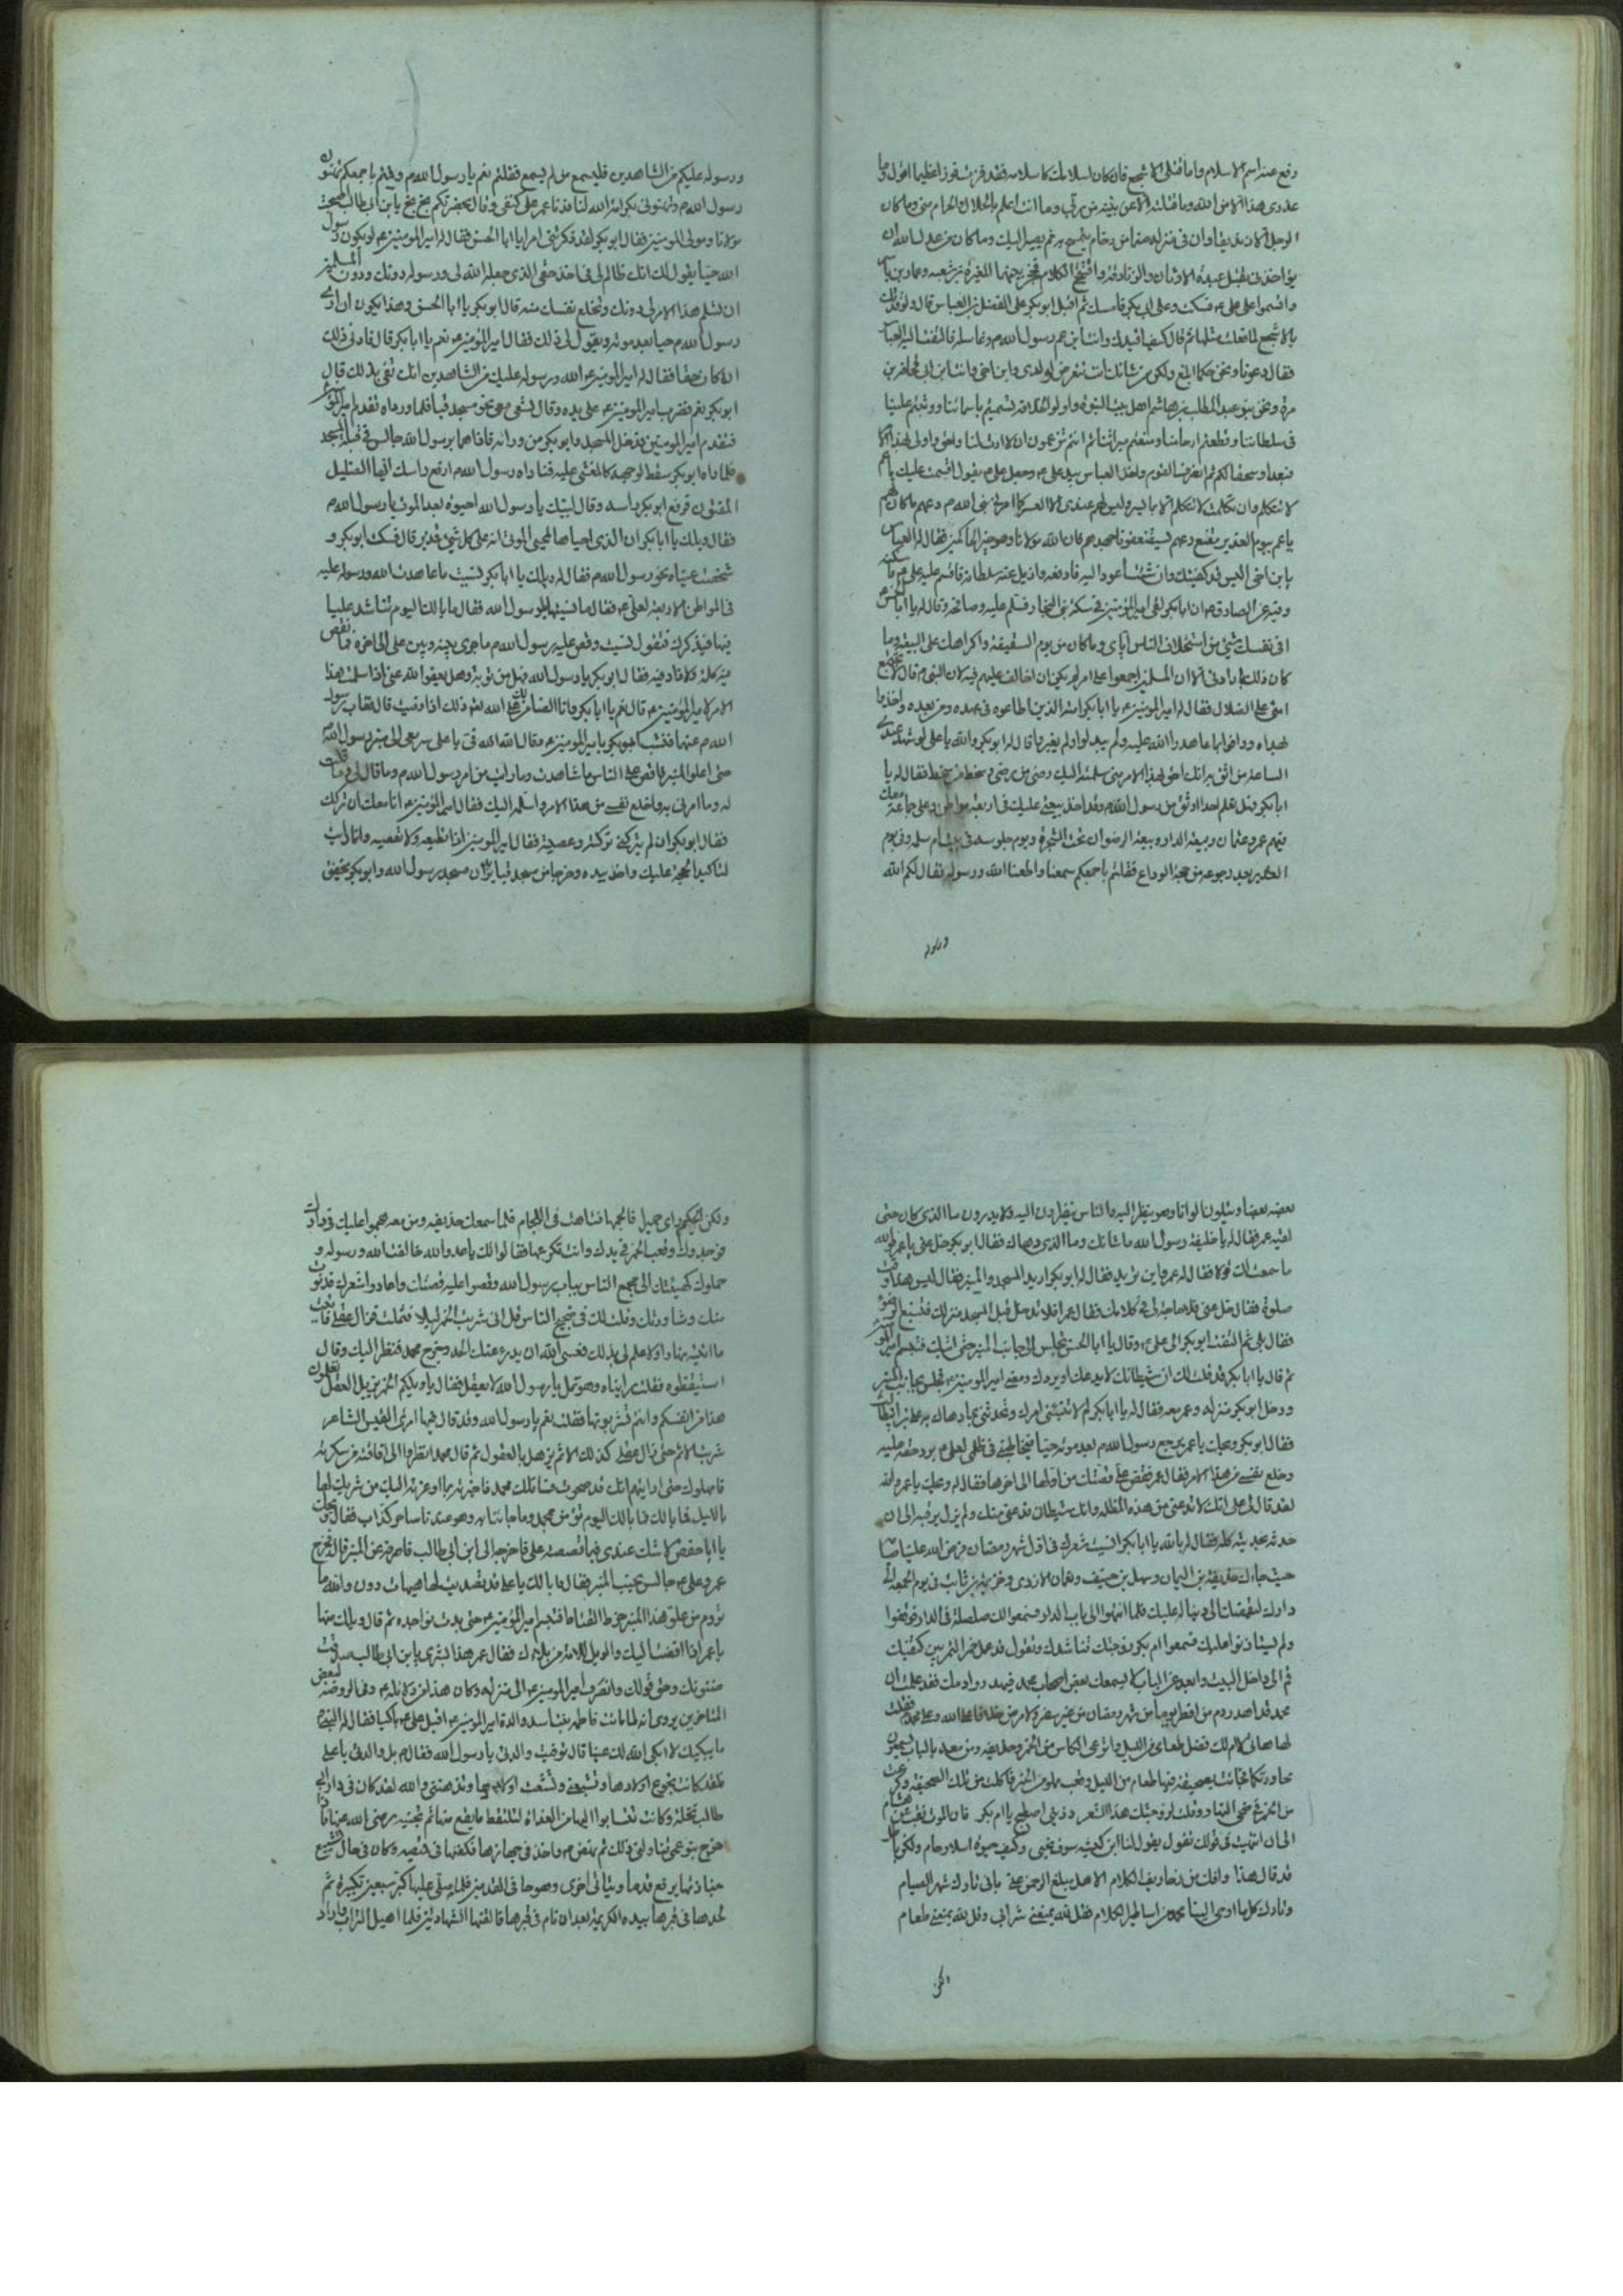 رفع عنه اسم الاسلام واما قتلى الاشجع فان كان اسلامك كاسلامه فقد فزت فوزا عظيما اقول وما
عذرى هذا الا من الله وما قتلته الا عن بينة من ربى وما انت اعلم بالحلال والحرام منى وما كان
الرجل الا زنديقا وان فى منزله صنما من رخام يتمسح به ثم يصير اليك وما كان من عدل الله ان
يؤاخذنى بقتل عبدة الاوثان والزنادقة وافتتح الكلام فحجز بينهما المغيرة بن شعبه وعمار بن ياسر
واقسموا على على ع فسكت وعلى ابى بكر فامسك ثم اقبل ابو بكر على الفضل بن العباس قال لو قدتك
بالاشجع لما فعلت مثلها ثم قال كيف اقيدك وانت ابن عم رسول الله م وغاسله فالتفت اليه العباس
فقال دعونا ونحن حكما ابلغ من شانك انك تتعرض لولدى وابن اخى وانت ابن ابى قحافه بن
مرة ونحن بنو عبد المطلب بن هاشم اهل بيت النبوة واولوا الخلافه تسميتم باسمائنا ووثبتم علينا
فى سلطاننا وقطعتم ارحامنا ومنعتم ميراثنا ثم انتم تزعمون ان لا ارث لنا وانتم احق واولى بهذا الامر
فبعدا وسحقا لكم ثم انصرف القوم واخذ العباس بيد على ع وجعل على ع يقول اقسمت عليك يا عم
لا تتكلم وان تكلمت لا تتكلم الا بما يسر وليس لهم عندى الا الصبر كما امرنى نبى الله م دعهم ما كان لهم
يا عم بيوم الغدير مقنع دعهم يستضعفونا جهدهم فان الله مولانا وهو خير الحاكمين فقال له العباس
يابن اخى اليس قد كفيتك وان شئت اعود اليه فاعرفه مكانه وانزل عنه سلطانه فاقسم عليه على ع فاسكته
وفيه عن الصادق ع ان ابا بكر لقى امير المؤمنين فى سكة بنى النجار فسلم عليه وصافحه وقال له يا ابا الحسن
افى نفسك شئ من استخلاف الناس اياى وما كان من يوم السقيفة واكراهك على البيعة وما
كان ذلك بارادتى الا ان المسلمين اجمعوا على امر لم يكن لى ان اخالف عليهم فيه لان النبى م قال لا تجتمع
امتى على الضلال فقال له امير المؤمنين ع يا ابا بكر امته الذين اطاعوه فى عهده ومن بعده واخذوا
بهداه ووافوا بما عاهدوا الله عليه ولم يبدلوا ولم يغيروا قال له ابو بكر والله يا على لو شهد عندى
الساعة من اثق به انك احق بهذا الامر منى سلمته اليك رضى من رضى وسخط من سخط فقال له يا
ابا بكر وهل تعلم احدا اوثق من رسول الله م وقد اخذ بيعتى عليك فى اربعة مواطن وعلى جماعة معك
فيهم عمر وعثمان وبيعة الدار وبيعة الرضوان تحت الشجرة ويوم جلوسه فى بيت ام سلمه وفى يوم
الغدير بعد رجوعه من حجة الوداع فقلتم باجمعكم سمعنا واطعنا الله ورسوله فقال لكم الله
ورسوله
ورسوله عليكم من الشاهدين فليسمع من لم يسمع فقلتم نعم يا رسول الله م وقمتم باجمعكم تهنون
رسول الله م وتهنونى بكرامة الله لنا فدنا عمر على كتفى وقال بحضرتكم بخ بخ يا بن ابى طالب اصبحت
مولانا ومولى المؤمنين فقال ابو بكر لقد ذكرتنى امرا يا ابا الحسن فقال له امير المؤمنين ع لو يكون رسول
الله حيا يقول لك انك ظالم لى فى اخذ حقى الذى جعله الله لى ورسوله دونك ودون المسلمين
ان تسلم هذا الامر لى دونك وتخلع نفسك منه قال ابو بكر يا ابا الحسن وهذا يكون ان ارى
رسول الله م حيا بعد موته ويقول لى ذلك فقال امير المؤمنين ع نعم يا ابا بكر قال فارنى ذلك
ان كان حقا فقال له امير المؤمنين ع الله ورسوله عليك من الشاهدين انك تفى بذلك قال
ابو بكر نعم فضرب امير المؤمنين ع على يده وقال تسعى معى نحو مسجد قبا فلما ورداه تقدم امير المؤمنين
فتقدم امير المؤمنين فدخل المسجد وابو بكر من ورائه فاذا هما برسول الله جالس فى قبلة المسجد
فلما راه ابو بكر سقط لوجهه كالمغشى عليه فناداه رسول الله م ارفع راسك ايها الضليل
المفتون فرفع ابو بكر راسه وقال لبيك يا رسول الله احيوة بعد الموت يا رسول الله م
فقال ويلك يا ابا بكر ان الذى احياها لمحيى الموتى انه على كل شئ قدير قال فسكت ابو بكر و
شخصت عيناه نحو رسول الله م فقال له ويلك يا ابا بكر انسيت ما عاهدت الله ورسوله عليه
فى المواطن الاربعة لعلى ع فقال ما نسيتها يا رسول الله فقال ما بالك اليوم تناشد عليا
فيها فيذكرك فتقول نسيت وقص عليه رسول الله م ما جرى بينه وبين على الى اخره فما نقص
منه كلمة ولا زاد فيه فقال ابو بكر يا رسول الله فهل من توبة وهل يعفو الله عنى اذا سلمت هذا
الامر لامير المؤمنين ع قال نعم يا ابا بكر وانا الضامن لك على الله ذلك اذا وفيت قال وغاب رسول
الله م عنهما فتشبث ابو بكر بامير المؤمنين ع وقال الله الله فى يا على سر معى الى منبر رسول الله م
حتى اعلو المنبر واقص على الناس ما شاهدت وما رايت من امر رسول الله م وما قال لى وما قلت
له وما امرنى به واخلع نفسى من هذا الامر واسلمه اليك فقال امير المؤمنين ع انا معك ان تركك
شيطانك
فقال ابو بكر ان لم يتركنى تركته وعصيته فقال امير المؤمنين اذا تطيعه ولا تعصيه وانما رايت
لتاكيد الحجة عليك واخذ بيده وخرجا من مسجد قبا يريدان مسجد رسول الله وابو بكر يخفق
بعضه بعضا ويتلون الوانا وهو ينظر اليه والناس ينظرون اليه ولا يدرون ما الذى كان حتى
لقيه عمر فقال له يا خليفة رسول الله ما شانك وما الذى دهاك فقال ابو بكر خل عنى يا عمر فوالله
ما سمعت لك قولا فقال له عمر واين تريد فقال له ابو بكر اريد المسجد والمنبر فقال ليس هذا وقت
صلوة فقال خل عنى فلا حاجة لى فى كلامك فقال عمر افلا تدخل قبل المسجد منزلك فتسبغ الوضوء
فقال بلى ثم التفت ابو بكر الى على ع وقال يا ابا الحسن تجلس الى جانب المنبر حتى اتيك فتبسم امير المؤمنين
ثم قال يا ابا بكر قد قلت لك ان شيطانك لا يدعك او يرديك ومضى امير المؤمنين ع فجلس بجانب المنبر
ودخل ابو بكر منزله وعمر معه فقال له يا ابا بكر لم لا تنبئنى امرك وتحدثنى بما دهاك به على بن ابيطالب
فقال ابو بكر ويحك يا عمر يرجع رسول الله م بعد موته حيا فيخاطبنى فى ظلمى لعلى م برد حقه عليه
وخلع نفسى من هذا الامر فقال عمر فقص على قصتك من اولها الى اخرها فقال له ويحك يا عمر والله
لقد قال لى على انك لا تدعنى من هذه المظلمة وانك شيطان فدعنى منك ولم يزل يرقبه الى ان
حدثه بحديثه كله فقال له بالله يا ابا بكر انسيت شعرك فى اول شهر رمضان فرض الله علينا صيامه
حيث جاءك حذيفه بن اليمان وسهل بن حنيف ونعمان الازدى وخزيمة بن ثابت فى يوم الجمعه الى
دارك ليتقضيك دينا له عليك فلما انتهوا الى باب الدار سمعوا لك صلصلة فى الدار فوقفوا
ولم يستاذنوا عليك فسمعوا ام بكر زوجتك تناشدك وتقول قد عمل حر الشمس بين كتفيك
قم الى داخل البيت وابعد عن الباب لا يسمعك بعض اصحاب محمد فيهدروا دمك فقد علمت ان
محمد قد اهدر دم من افطر يوما من شهر رمضان من غير سفر ولا مرض خلافا على الله وعلى محمد فقلت
لها هاتى لا ام لك فضل طعامى من الليل واترعى الكاس من الخمر وحذيفه ومن معه بالباب يسمعون
محاورتكما فجائت بصحيفة فيها طعام من الليل وقعب مملو من الخمر فاكلت من تلك الصحيفة وكرعت
من الخمر فى ضحى النهار وقلت لزوجتك هذا الشعر ذرينى اصطبح يا ام بكر فان الموت نقب عن هشام
الى ان انتهيت فى قولك تقول يقول لنا ابن كبشه سوف نحيى وكيف حيوة اشلاء وهام ولكن باطل
قد قال هذا وافك من زخاريف الكلام الا هل مبلغ الرحمن عنى بانى تارك شهر الصيام
وتارك كل ما اوحى الينا محمد من اساطير الكلام فقل لله يمنعنى شرابى وقل لله يمنعنى طعامى
ولكن
ولكن الحكيم راى حميرا فالجمها فتاهت فى اللجام فلما سمعك حذيفه ومن معه هجموا عليك فى دارك
فوجدوك وقعب الخمر فى يدك وانت تكرعها فقالوا لك يا عدو الله خالفت الله ورسوله و
حملوك كهيئتك الى مجمع الناس بباب رسول الله وقصوا عليه قصتك واعادوا شعرك فدنوت
منك وشاورتك وقلت لك فى ضجيج الناس قل انى شربت الخمر ليلا فثملت فزال عقلى فاتيت
ما اتيته نهارا ولا علم لى بذلك فعسى الله ان يدرء عنك الحد وخرج محمد فنظر اليك وقال
استيقظوه فقلت رايناه وهو ثمل يا رسول الله لا يعقل فقال ويحكم الخمر يزيل العقل تعلمون
هذا من انفسكم وانتم تشربونها فقلنا نعم يا رسول الله وقد قال فيها امرئ القيس الشاعر
شربت الاثم حتى زال عقلى كذاك الاثم يذهب بالعقول ثم قال محمد انظروا الى افاقته من سكرته
فامهلوك حتى اريتهم انك قد صحوت فسائلك محمد فاخبرته بما اوعزته اليك من شربك لها
بالليل فما بالك اليوم تؤمن بمحمد وما جاء به وهو عندنا ساحر كذاب فقال ويحك
يا ابا حفص لا شك عندى فيما قصصته على فاخرج الى ابن ابى طالب فاصرفه عن المنبر قال فخرج
عمر وعلى ع جالس بجنب المنبر فقال ما بالك يا على قد تصديت لها هيهات دون والله ما
تروم من علو هذا المنبر خرط القتاد فتبسم امير المؤمنين ع حتى بدت نواجذه ثم قال ويلك منها
يا عمر اذا افضت اليك والويل للامة من بلائك فقال عمر هذا بشرى يا بن ابى طالب صدقت
ظنونك وحق قولك وانصرف امير المؤمنين ع الى منزله وكان هذا من دلائله ع وفى الروضة لبعض
المتاخرين يروى انه لما ماتت فاطمه بنت اسد والدة امير المؤمنين ع اقبل على ع باكيا فقال له النبى م
ما يبكيك لا ابكى الله لك عينا قال توفيت والدتى يا رسول الله فقال م بل والدتى يا على
فلقد كانت تجوع اولادها وتشبعنى وتشعث اولادها وتدهننى والله لقد كان فى دار ابى
طالب نخلة وكانت تسابق اليها من الغداة لتلتقط ما يقع منها ثم تجنيه رضى الله عنها فاذا
خرج بنو عمى تناولنى ذلك ثم نهض م واخذ فى جهازها فكفنها فى قميصه وكان فى حال تشييع
جنازتها يرفع قدما ويتانى اخرى وهو حافى القدمين فلما صلى عليها كبر سبعين تكبيرة ثم
لحدها فى قبرها بيده الكريمة بعد ان نام فى قبرها ولقنها الشهادتين فلما اهيل التراب واراد